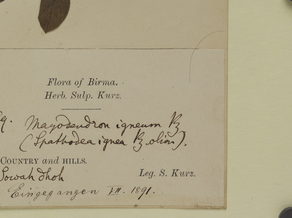 Flora of Birma.
Herb. Sulp. Kurz.
Mayodendron igneum Kz
(Spathodea ignea Kz olim).
COUNTRY and HILLS.
Leg. S. Kurz.
Eingegangen VII. 1891.